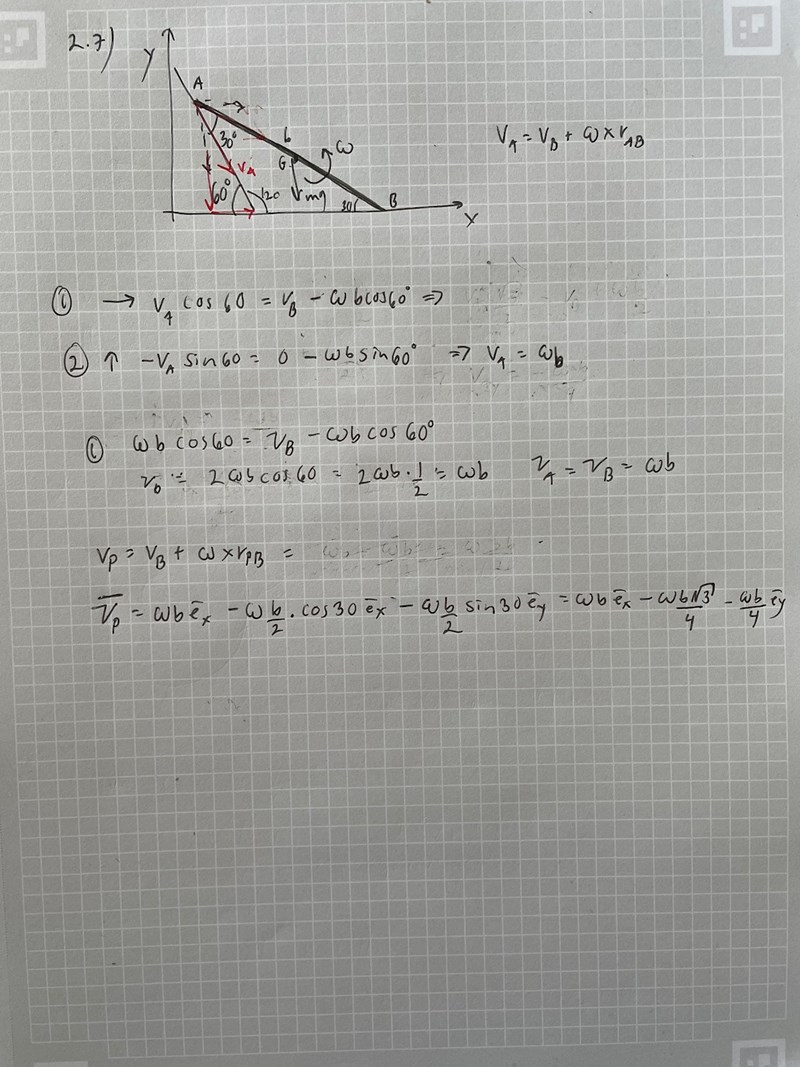 2.7)
Y
A
30°
L
G
ω
V_A
60°
120
mg
30
B
X
V_A = V_B + ω × r_AB
① → V_A cos 60 = V_B - ωb cos 60° ⇒
② ↑ -V_A sin 60 = 0 - ωb sin 60° ⇒ V_A = ωb
① ωb cos 60 = V_B - ωb cos 60°
V_b = 2ωb cos 60 = 2ωb · 1/2 = ωb V_A = V_B = ωb
V_P = V_B + ω × r_PB =
V̅_P = ωb e̅_x - ω b/2 · cos 30 e̅_x - ω b/2 sin 30 e̅_y = ωb e̅_x - ωb√3/4 - ωb/4 e̅_y